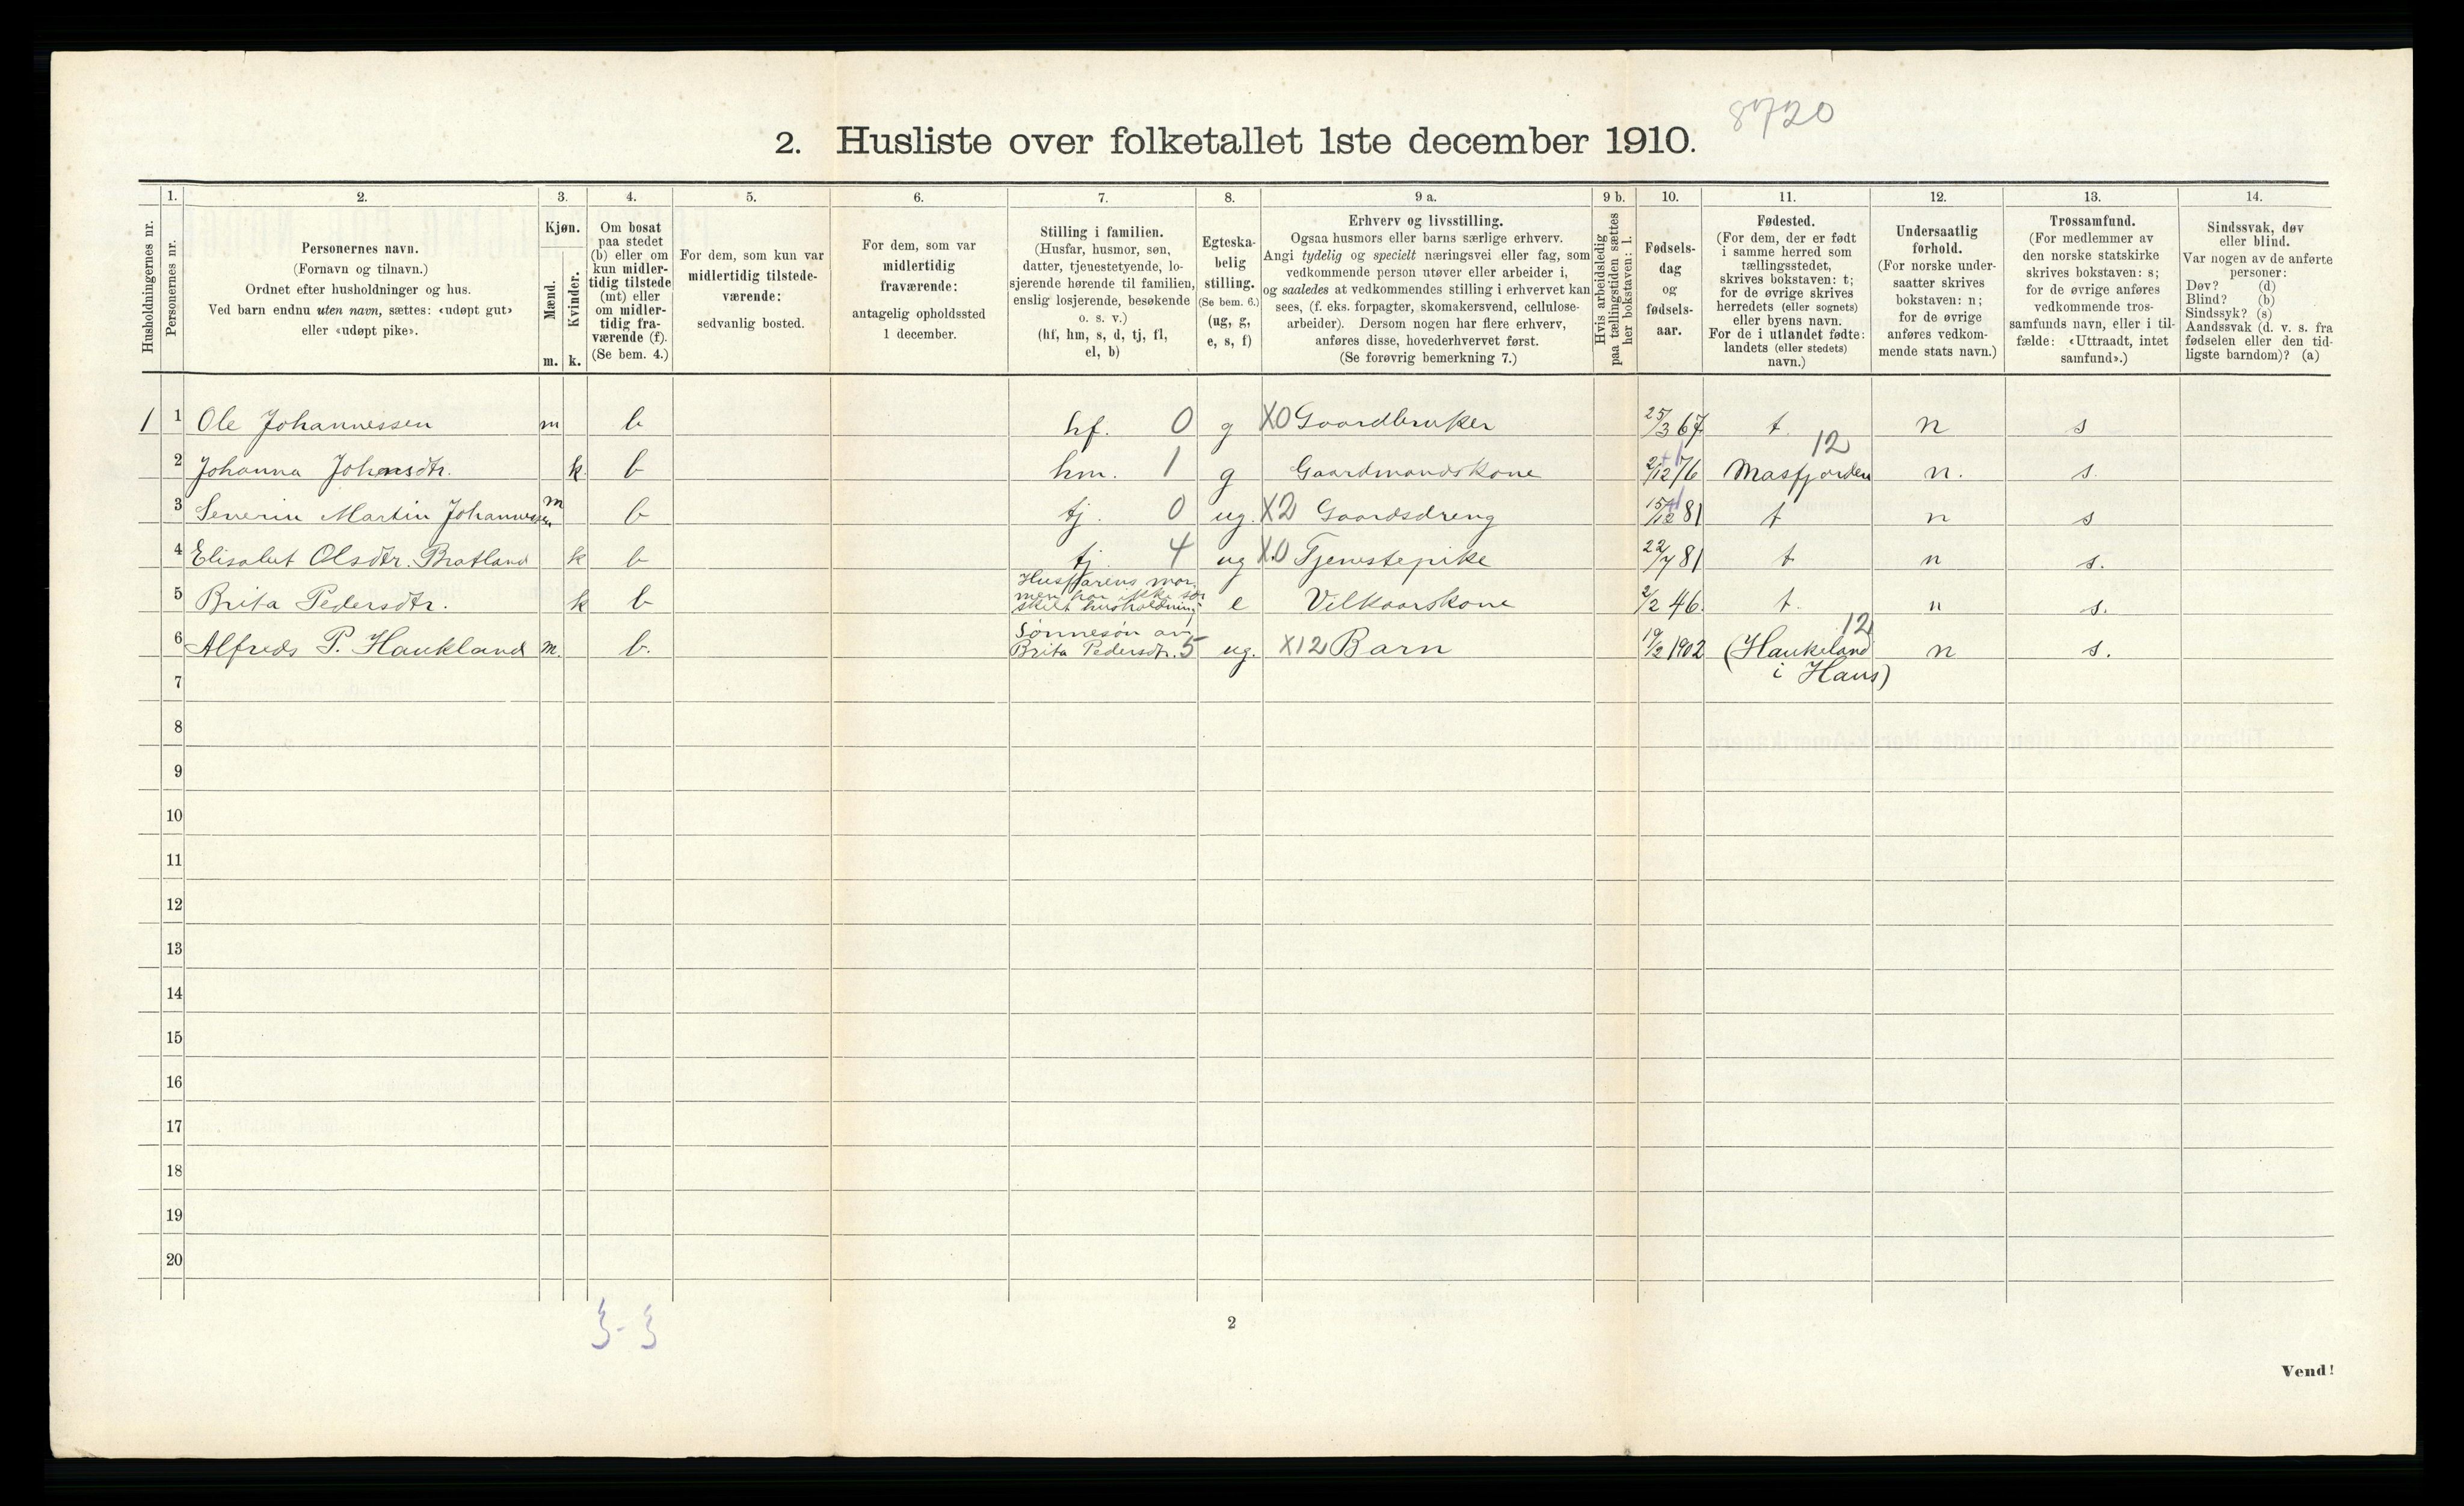 8720
2. Husliste over folketallet 1ste december 1910.
Husholdningernes nr.
1.
Personernes nr.
2.
Personernes navn.
(Fornavn og tilnavn.)
Ordnet efter husholdninger og hus.
Ved barn endnu uten navn, sættes: «udøpt gut»
eller «udøpt pike».
3.
Kjøn.
Mænd.
Kvinder.
m. k.
4.
Om bosat
paa stedet
(b) eller om
kun midler-
tidig tilstede
(mt) eller
om midler-
tidig fra-
værende (f).
(Se bem. 4.)
5.
For dem, som kun var
midlertidig tilstede-
værende:
sedvanlig bosted.
6.
For dem, som var
midlertidig
fraværende:
antagelig opholdssted
1 december.
7.
Stilling i familien.
(Husfar, husmor, søn,
datter, tjenestetyende, lo-
sjerende hørende til familien,
enslig losjerende, besøkende
o. s. v.)
(hf, hm, s, d, tj, fl,
el, b)
8.
Egteska-
belig
stilling.
(Se bem. 6.)
(ug, g,
e, s, f)
9 a.
Erhverv og livsstilling.
Ogsaa husmors eller barns særlige erhverv.
Angi tydelig og specielt næringsvei eller fag, som
vedkommende person utøver eller arbeider i,
og saaledes at vedkommendes stilling i erhvervet kan
sees, (f. eks. forpagter, skomakersvend, cellulose-
arbeider). Dersom nogen har flere erhverv,
anføres disse, hovederhvervet først.
(Se forøvrig bemerkning 7.)
9 b.
Hvis arbeidsledig
paa tællingstiden sættes
her bokstaven: l.
10.
Fødsels-
dag
og
fødsels-
aar.
11.
Fødested.
(For dem, der er født
i samme herred som
tællingsstedet,
skrives bokstaven: t;
for de øvrige skrives
herredets (eller sognets)
eller byens navn.
For de i utlandet fødte:
landets (eller stedets)
navn.)
12.
Undersaatlig
forhold.
(For norske under-
saatter skrives
bokstaven: n;
for de øvrige
anføres vedkom-
mende stats navn.)
13.
Trossamfund.
(For medlemmer av
den norske statskirke
skrives bokstaven: s;
for de øvrige anføres
vedkommende tros-
samfunds navn, eller i til-
fælde: «Uttraadt, intet
samfund».)
14.
Sindssvak, døv
eller blind.
Var nogen av de anførte
personer:
Døv? (d)
Blind? (b)
Sindssyk? (s)
Aandssvak (d. v. s. fra
fødselen eller den tid-
ligste barndom)? (a)
1 1 Ole Johannessen m b hf. 0 g X0 Gaardbruker 25/3 67 t. n s
2 Johanna Johansdtr. k. b hm. 1 g Gaardmandskone 2/12 76 Masfjorden 12 n. s.
3 Severin Martin Johannessen m b tj. 0 ug. X2 Gaardsdreng 15/12 81 t n s
4 Elisabet Olsdtr. Bratland k b tj. 4 ug X.0 Tjenestepike 22/7 81 t n s.
5 Brita Pedersdtr. k b Husfarens mor,
men har ikke sær
skilt husholdning e Vilkaarskone 2/2 46. t. n s.
6 Alfreds P. Haukland m. b. Sønnesøn av
Brita Pedersdtr. 5 ug. X12 Barn 19/2 1902 (Haukeland 12 n s.
i Haus)
7
8
9
10
11
12
13
14
15
16
17
18
19
20
3-3
2
Vend!